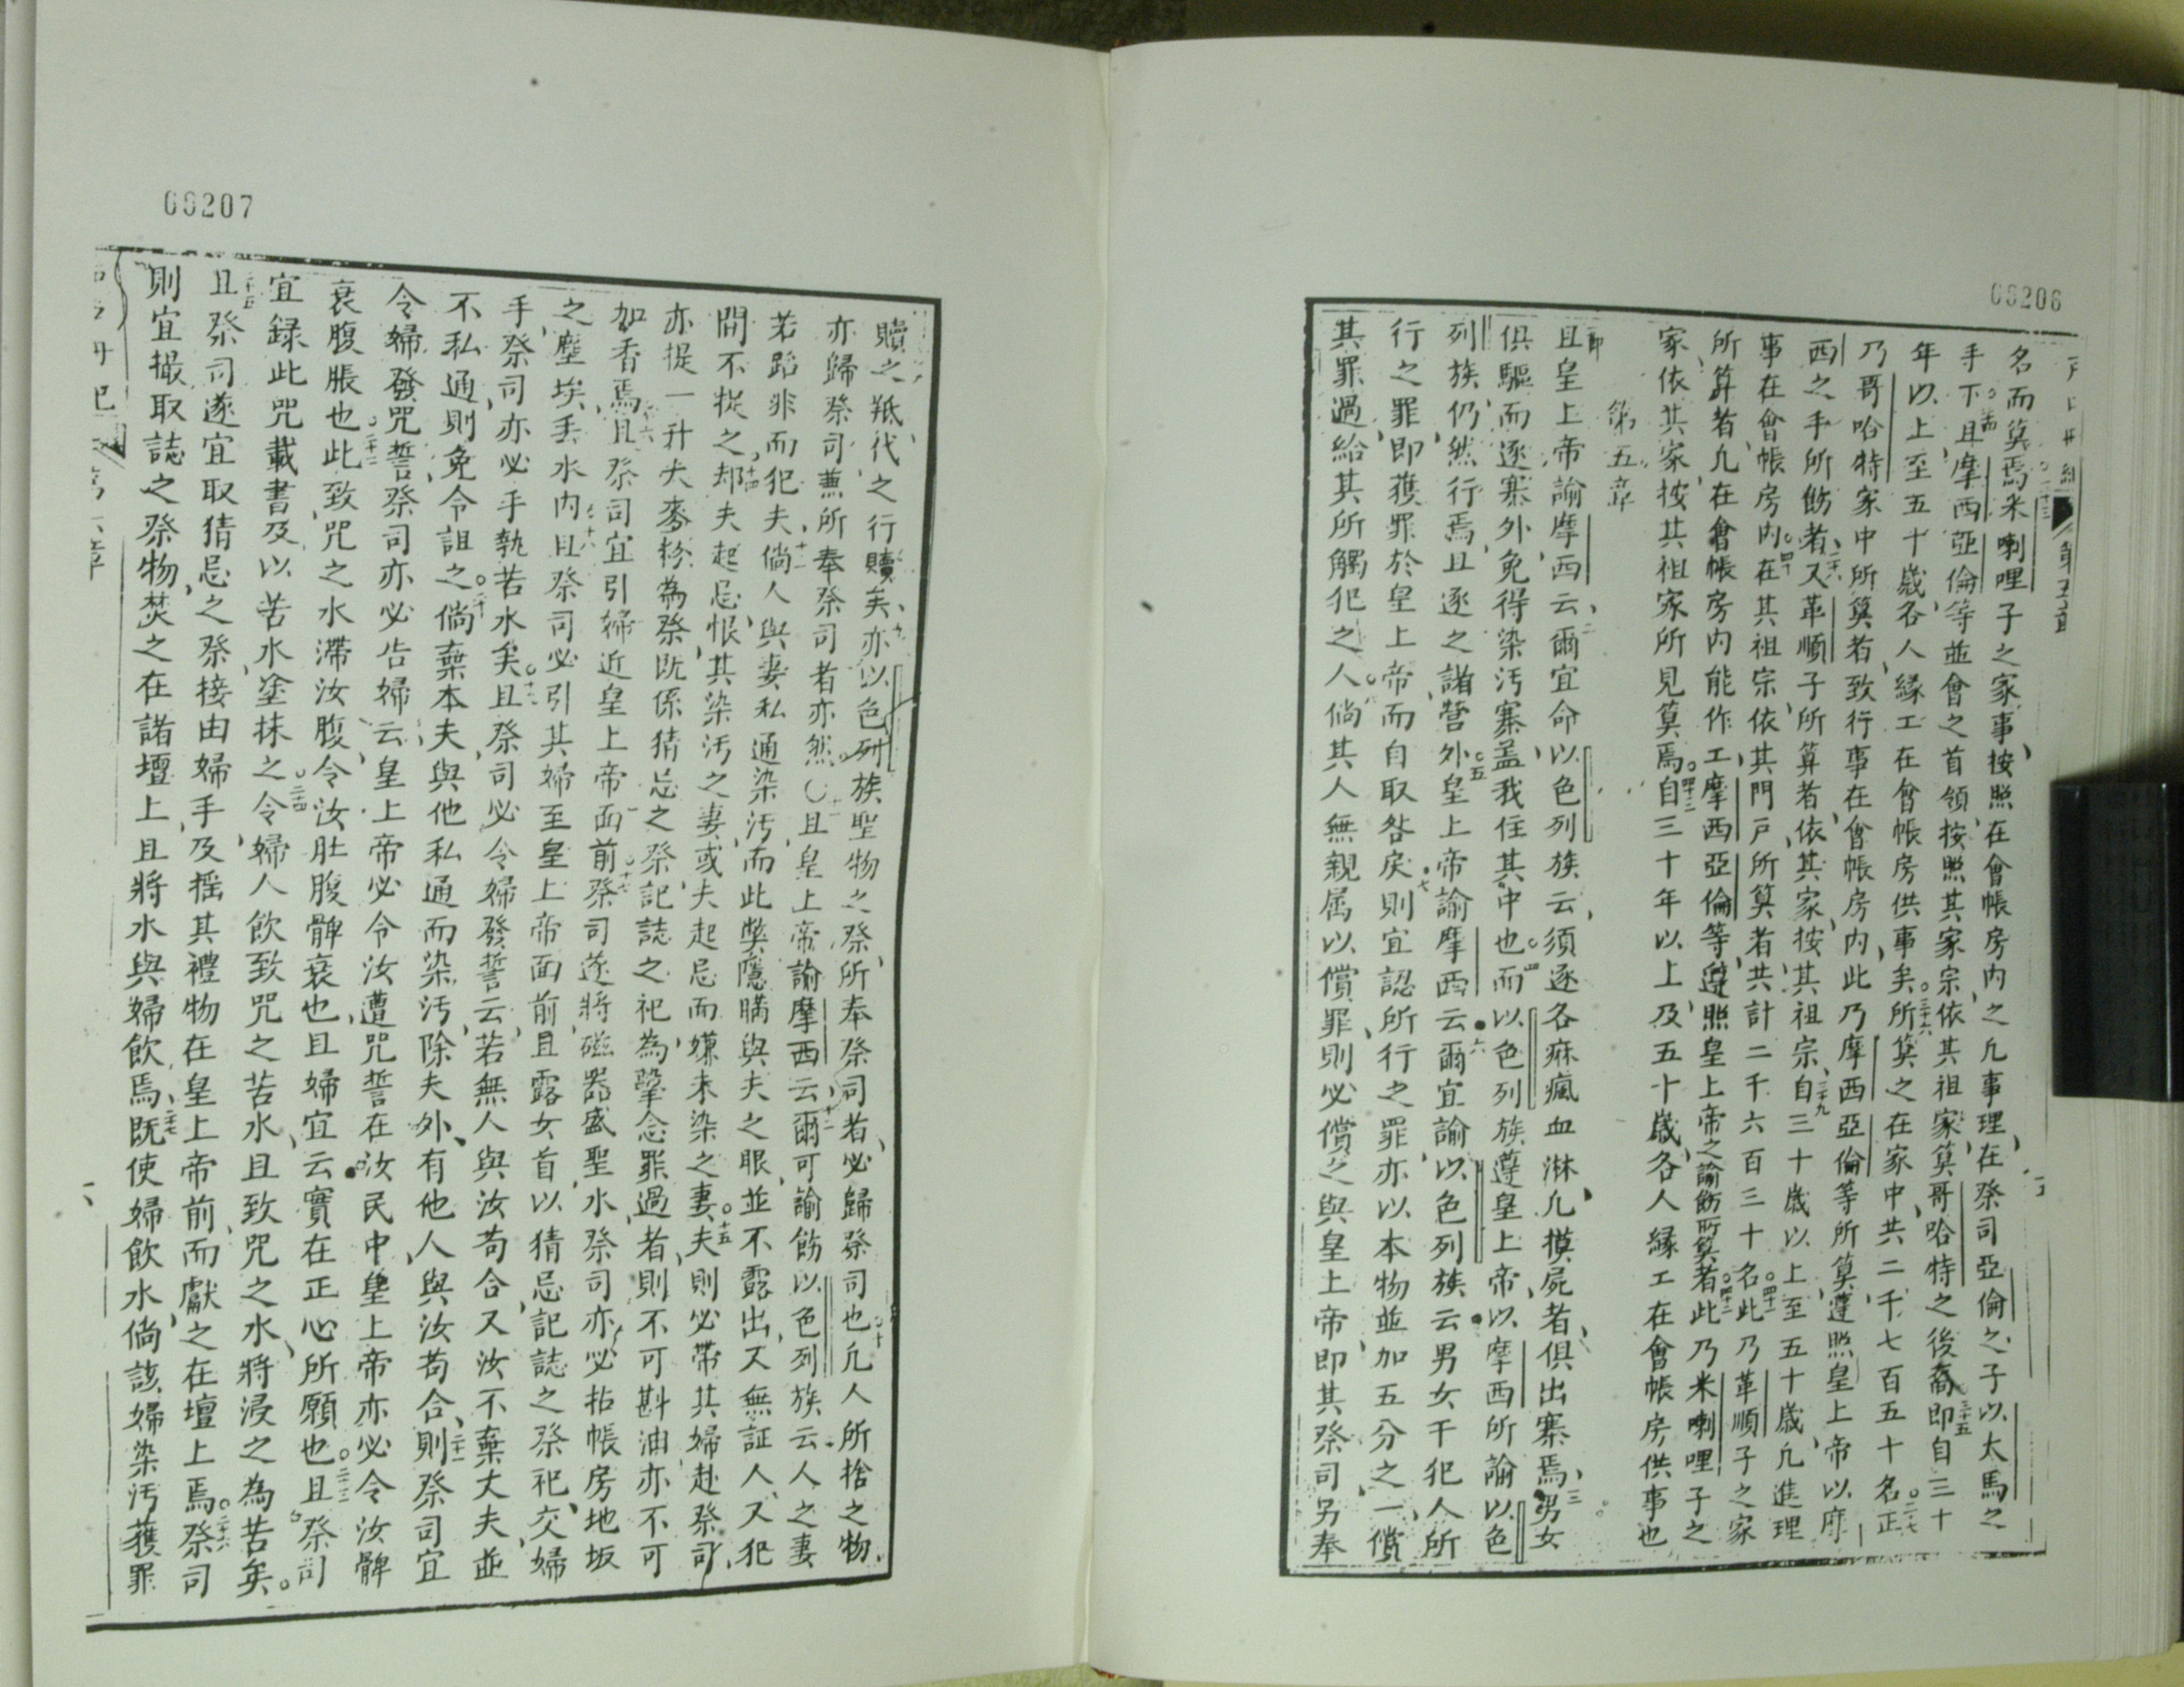 06206
名而筭焉米喇哩子之家事按照在會帳房內之凢事理在祭司亞倫之子以大馬之
手下且摩西亞倫等並會之首領按照其家宗依其祖家筭哥哈特之後裔即自三十
年以上至五十歲各人緣工在會帳房供事矣所筭之在家中共二千七百五十名正
乃哥哈特家中所筭者致行事在會帳房内此乃摩西亞倫等所筭遵照皇上帝以摩
西之手所飭者又革順子所算者依其家按其祖宗自三十歲以上至五十歲凢進理
事在會帳房内在其祖宗依其門戸所筭者共計二千六百三十名此乃革順子之家
所算者凢在會帳房内能作工摩西亞倫等遵照皇上帝之諭飭所筭者此乃米喇哩子之
家依其家按其祖家所見筭焉自三十年以上及五十歲各人緣工在會帳房供事也
第五章
且皇上帝諭摩西云爾宜命以色列族云須逐各痳瘋血淋凢摸屍者俱出寨焉男女
俱驅而逐寨外免得染汚寨盖我住其中也而以色列族遵皇上帝以摩西所諭以色
列族仍然行焉且逐之諸營外皇上帝諭摩西云爾宜諭以色列族云男女干犯人所
行之罪即獲罪於皇上帝而自取咎戾則宜認所行之罪亦以本物並加五分之一償
其罪過給其所觸犯之人倘其人無親属以償罪則必償之與皇上帝即其祭司另奉
06207
贖之羝代之行贖矣亦以色列族聖物之祭所奉祭司者必歸祭司也凢人所捨之物
亦歸祭司蕙所奉祭司者亦然〇且皇上帝諭摩西云爾可諭飭以色列族云人之妻
若蹈非而犯夫倘人與妻私通染汚而此獘隱瞞與夫之眼並不露出又無証人又犯
間不捉之却夫起忌恨其染汚之妻或夫起忌而嫌未染之妻夫則必帶其婦赴祭司
亦提一升大麥粉為祭既係猜忌之祭記誌之祀為掔念罪過者則不可斟油亦不可
加香焉且祭司宜引婦近皇上帝面前祭司遂將磁器盛聖水祭司亦必拈帳房地坂
之塵埃丢水内且祭司必引其婦至皇上帝面前且露女首以猜忌記誌之祭祀交婦
手祭司亦必手執苦水矣且祭司必令婦發誓云若無人與汝苟合又汝不棄丈夫並
不私通則免令詛之倘棄本夫與他私通而染汚除夫外有他人與汝苟合則祭司宜
令婦發咒誓祭司亦必告婦云皇上帝必令汝遭咒誓在汝民中皇上帝亦必令汝髀
衰腹脹也此致咒之水滯汝腹令汝肚腹髀衰也且婦宜云實在正心所願也且祭司
宜録此咒載書及以苦水塗抹之令婦人飲致咒之苦水且致咒之水將浸之為苦矣
且祭司遂宜取猜忌之祭接由婦手及揺其禮物在皇上帝前而獻之在壇上焉祭司
則宜撮取誌之祭物焚之在諸壇上且將水與婦飲焉既使婦飲水倘該婦染汚獲罪